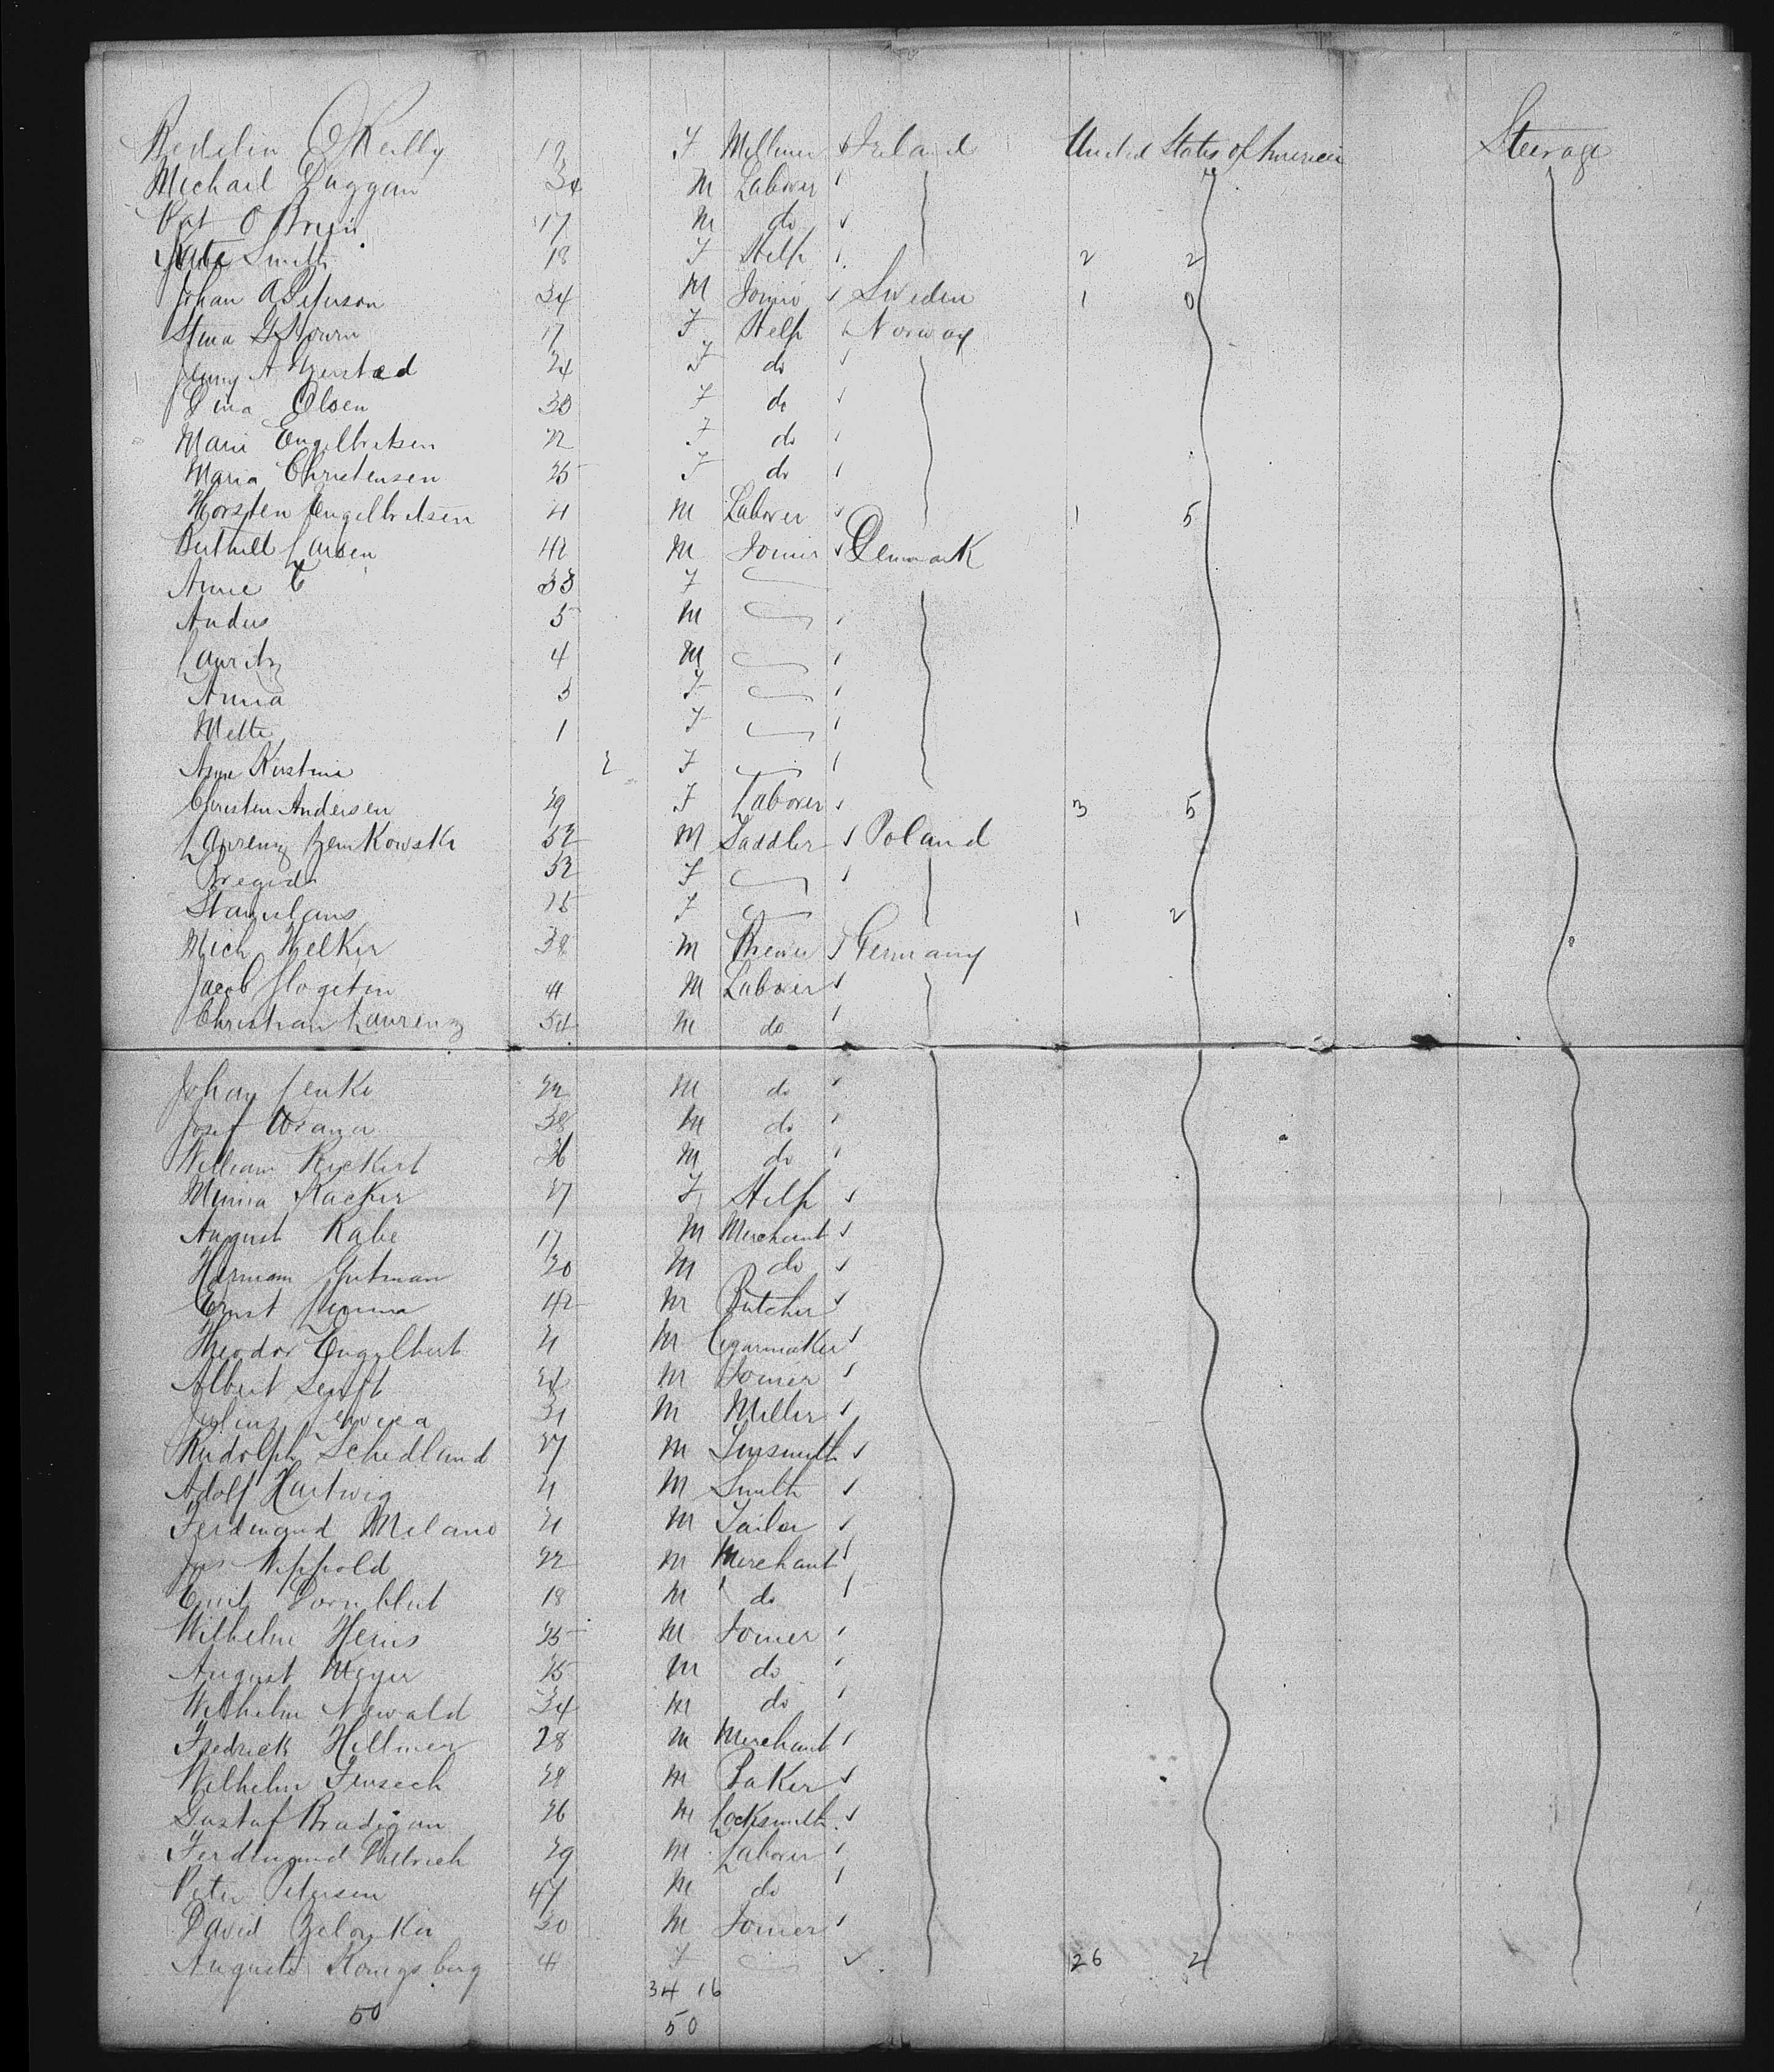 Bedelin O'Reilly 19 F Milliner Ireland United States of America Steerage
Michael Duggan 34 M Laborer "
Pat O Brien 17 M do
Kate Smith 18 F Help 2 2
Johan A Peterson 34 M Joiner Sweden 1 0
Stina 17 F Help Norway
Jenny A 24 F do
Dina Olsen 30 F do
Marie Engelbretsen 22 F do
Maria Christensen 25 F do
Torsten Engelbretsen 21 M Laborer 1 5
Berthill Larsen 42 M Joiner Denmark
Anne C 33 F
Andus 5 M
Lauritz 4 M
Anna 3 F
Mette 1 F
Anne Kirstine 2 F
Christen Andersen 29 F Laborer 3 5
Laurenz Zemkowski 52 M Saddler Poland
Bregida 52 F
Stanislaus 15 F 1 2
Mich Welker 38 M Brewer Germany
Jacob M Laborer
Christian Laurenz 54 M do
Johan Lenke 22 M do
Josef 38 M do
William Rickert 26 M do
Minna 27 F Help
August Rabe 17 M Merchant
Hermann Gutman 20 M do
Ernst 42 M Butcher
Theodor Engelbert 21 M Cigarmaker
Albert Senft 24 M Joiner
Julius 31 M Miller
Rudolph Schedland 27 M Tinsmith
Adolf Hartwig 21 M Smith
Ferdinand Milano 21 M Tailor
Jos Nippold 22 M Merchant
Emil Dornblut 18 M do
Wilhelm Heins 25 M Joiner
August Meyer 25 M do
Wilhelm Newald 34 M do
Fredrick Hillmer 28 M Merchant
Wilhelm 28 M Baker
Gustaf Bradigan 26 M Locksmith
Ferdinand Dittrich 29 M Laborer
Peter Petersen 47 M do
David 30 M Joiner
Auguste Konigsberg F 26 2
34 16
50 50